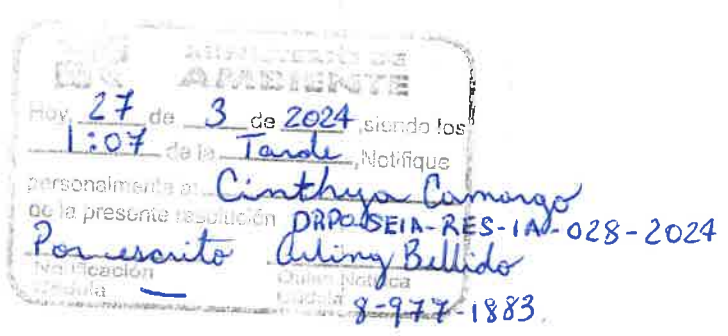 MINISTERIO DE
AMBIENTE
Hoy, 27 de 3 de 2024, siendo los
1:07 de la Tarde, Notifique
personalmente a: Cinthya Camargo
de la presente resolución DRPO-SEIA-RES-IA-028-2024
Por escrito Arling Bellido
Notificación Quien Notifica
Cédula Cédula
8-977-1883